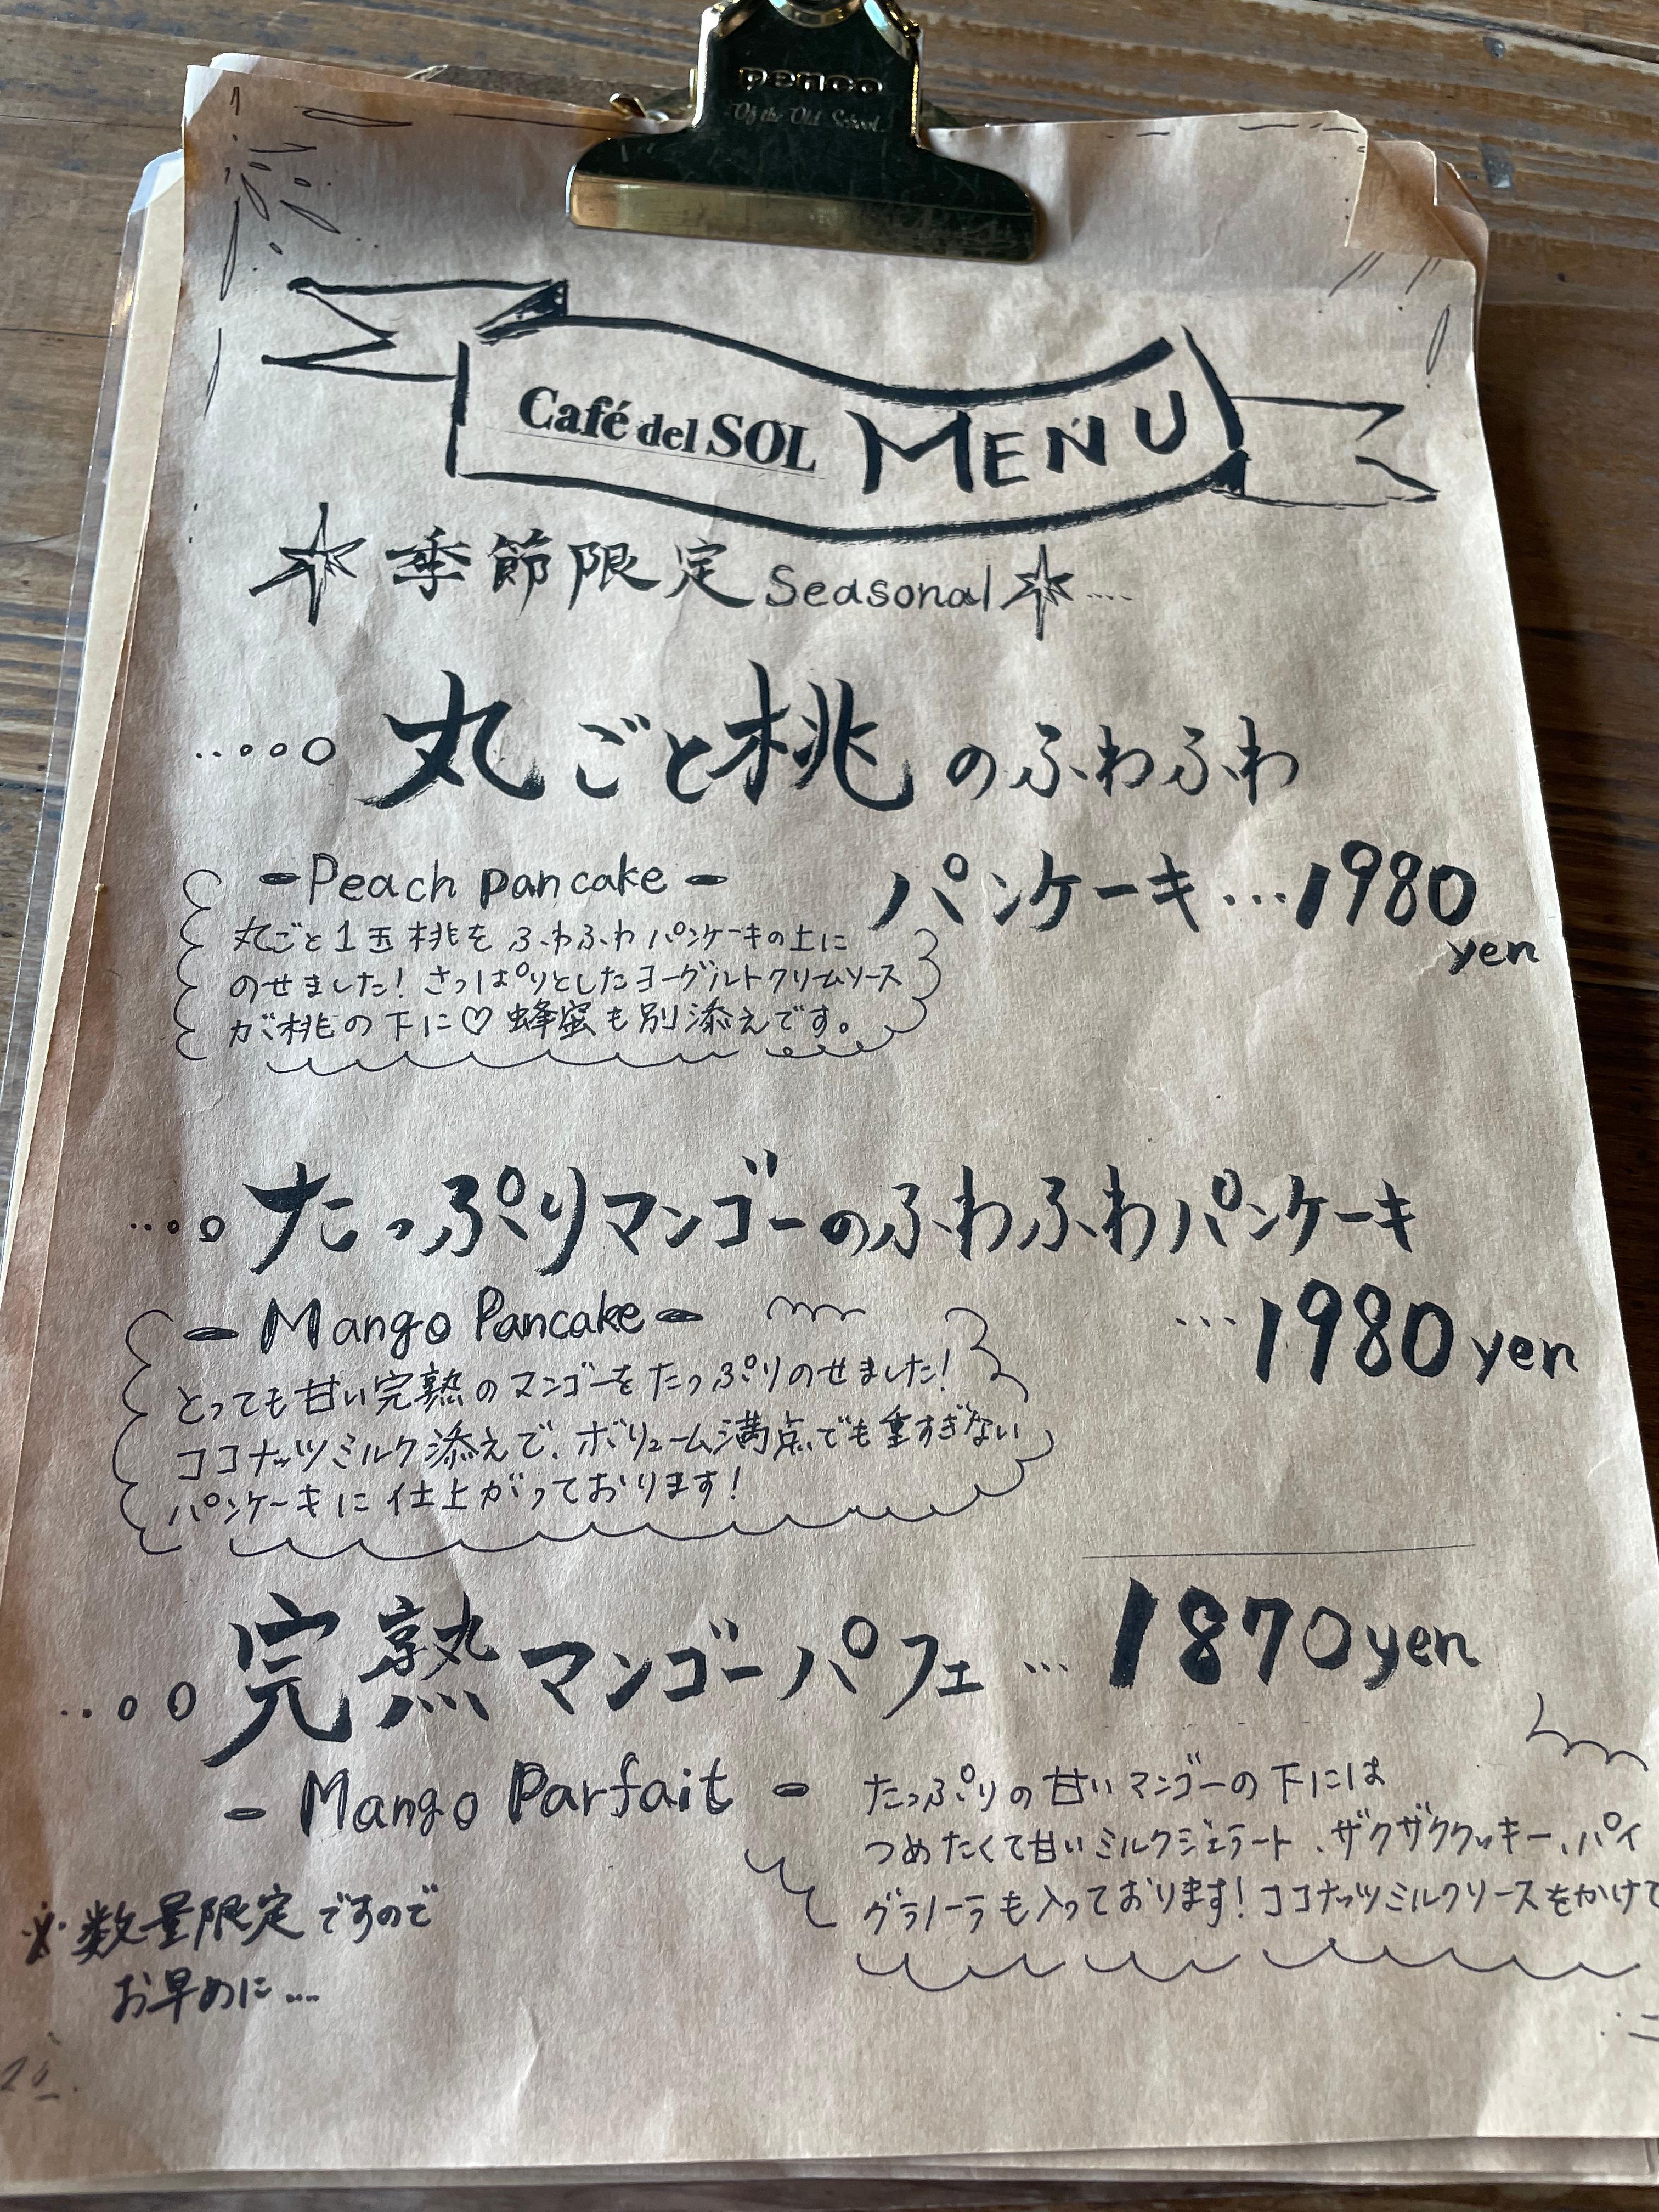 penco
Of the Old School
Café del SOL MENU
季節限定 Seasonal
丸ごと桃のふわふわ
パンケーキ…1980
yen
-Peach pancake-
丸ごと1玉桃をふわふわパンケーキの上に
のせました!さっぱりとしたヨーグルトクリームソース
が桃の下に♡蜂蜜も別添えです。
たっぷりマンゴーのふわふわパンケーキ
…1980 yen
-Mango Pancake-
とっても甘い完熟のマンゴーをたっぷりのせました!
ココナッツミルク添えで、ボリューム満点でも重すぎない
パンケーキに仕上がっております!
完熟マンゴーパフェ…1870yen
-Mango Parfait-
たっぷりの甘いマンゴーの下には
つめたくて甘いミルクジェラート、ザクザククッキー、パイ
グラノーラも入っております!ココナッツミルクソースをかけて
※数量限定ですので
お早めに…